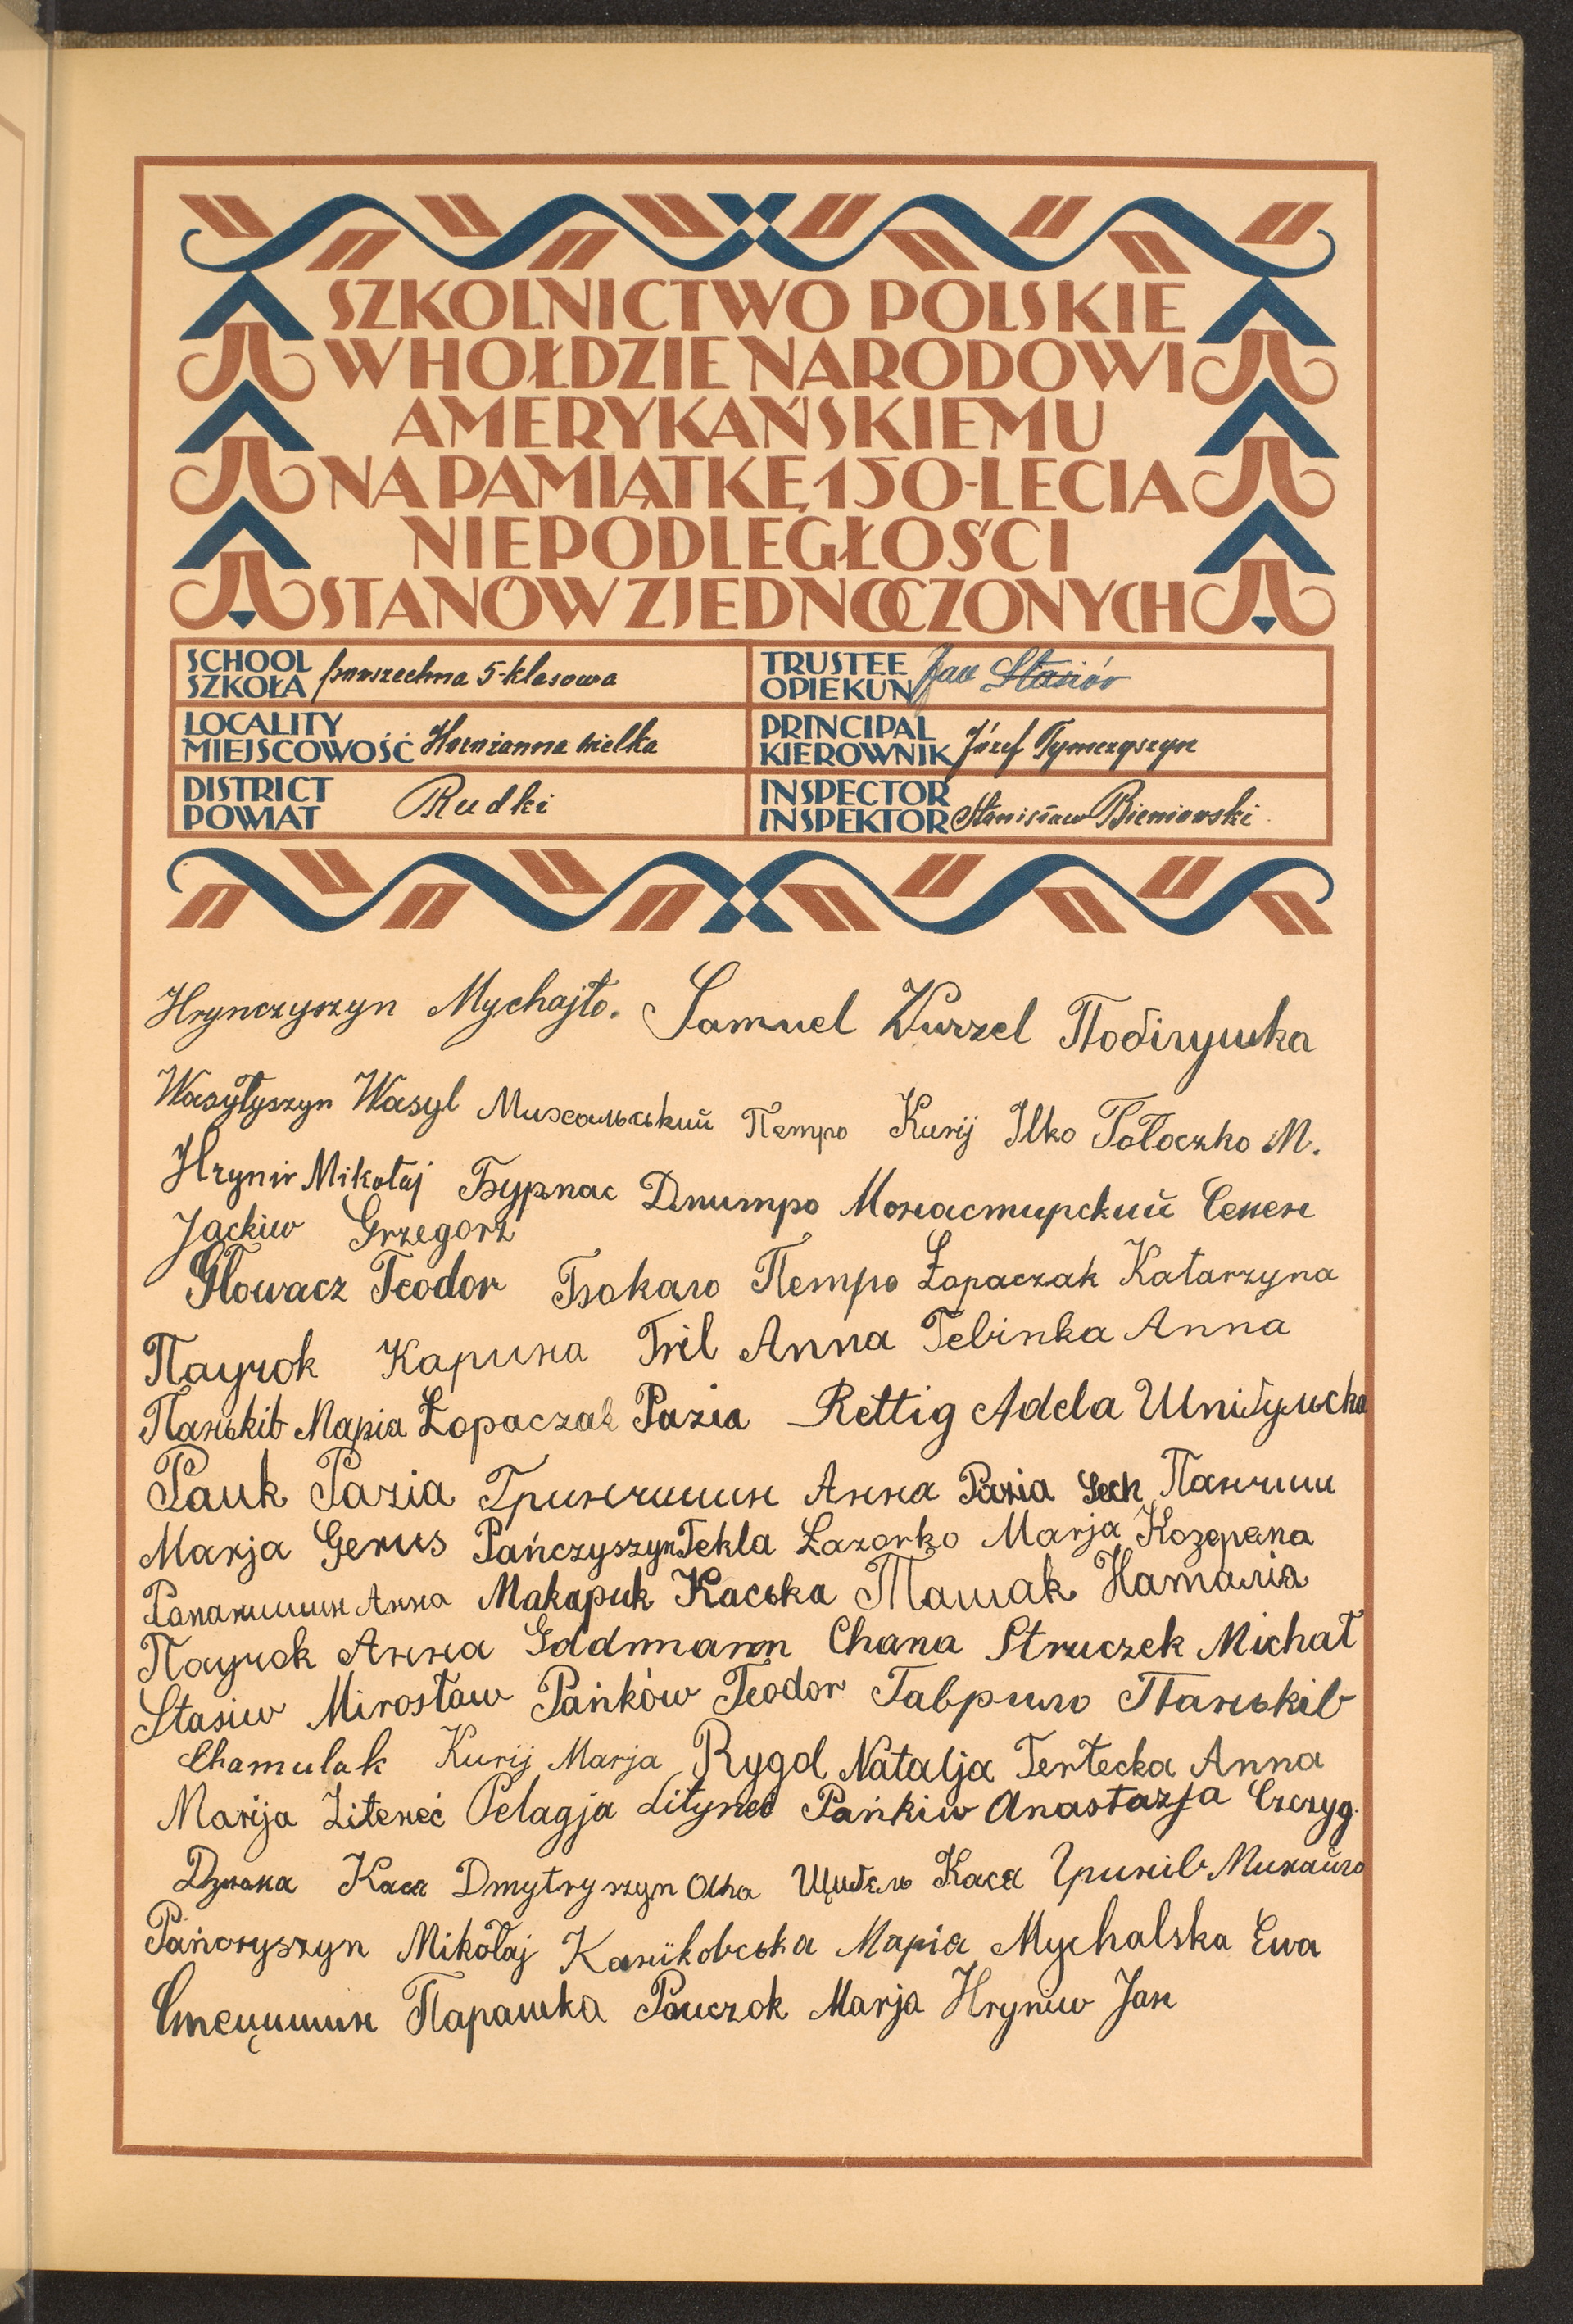 SZKOLNICTWO POLSKIE
W HOŁDZIE NARODOWI
AMERYKAŃSKIEMU
NA PAMIĄTKĘ 150-LECIA
NIEPODLEGŁOŚCI
STANÓW ZJEDNOCZONYCH
SCHOOL
SZKOŁA powszechna 5-klasowa
TRUSTEE
OPIEKUN Jan Stasiów
LOCALITY
MIEJSCOWOŚĆ Horożanna wielka
PRINCIPAL
KIEROWNIK Józef Tymczyszyn
DISTRICT
POWIAT Rudki
INSPECTOR
INSPEKTOR Stanisław Bieniowski
Hrynczyszyn Mychajło. Samuel Wurzel
Wasyłyszyn Wasyl Михальский Петро Kurij Ilko Tołoczko M.
Hryniv Mikołaj Бурпас Дмитро Монастирский Семен
Jackiw Grzegorz
Głowacz Teodor Бокало Петро Łopaczak Katarzyna
Паучок Карина Tril Anna Tebinka Anna
Паньків Марія Łopaczak Pazia Rettig Adela Шпідульска
Pauk Pazia Гринчишин Анна Pazia Lech Панчиш
Marja Gerus Pańczyszyn Tekla Łazorko Marja
Анна Макарик Каська Ташак Наталія
Паучок Анна Goldmann Chana Struczek Michał
Stasiw Mirosław Pańków Teodor Гаврило Паньків
Chamulak Kurij Marja Rygol Natalja Tertecka Anna
Marija Liteneć Pelagja Lityneć Pańkiw Anastazja
Кася Dmytryszyn Olha Щибель Кася Гринів Михайло
Pańczyszyn Mikołaj Канюковська Марія Mychalska Ewa
Стецишин Парашка Pauczok Marja Hryniw Jan